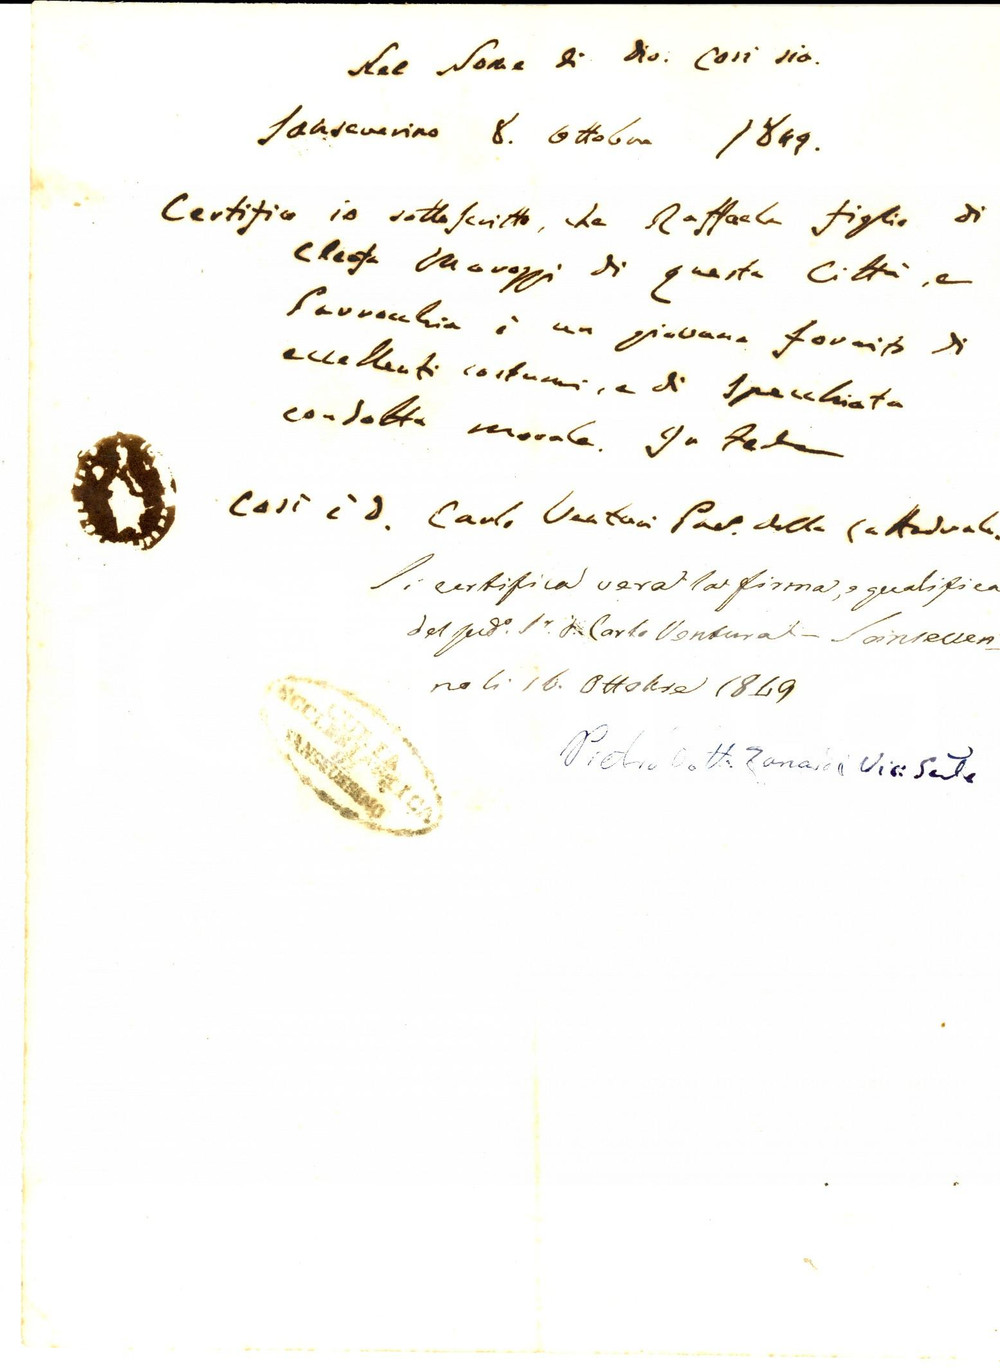 Nel Nome di Dio. Così sia.
Sanseverino 8. Ottobre 1849.
Certifico io sottoscritto, che Raffaele figlio di
Cleofa Marozzi di questa Città, e
Parrocchia è un giovane fornito di
eccellenti costumi, e di specchiata
condotta morale. In Fede
Così è D. Carlo Venturi Par. della Cattedrale.
Si certifica vera la firma, e qualifica
del sud.o Sr. D. Carlo Ventura Sanseveri=
no li 16. Ottobre 1849
Pietro Dott. Zonardi Vic: Gen.le
CURIA
ECCLESIASTICA
DI
SANSEVERINO